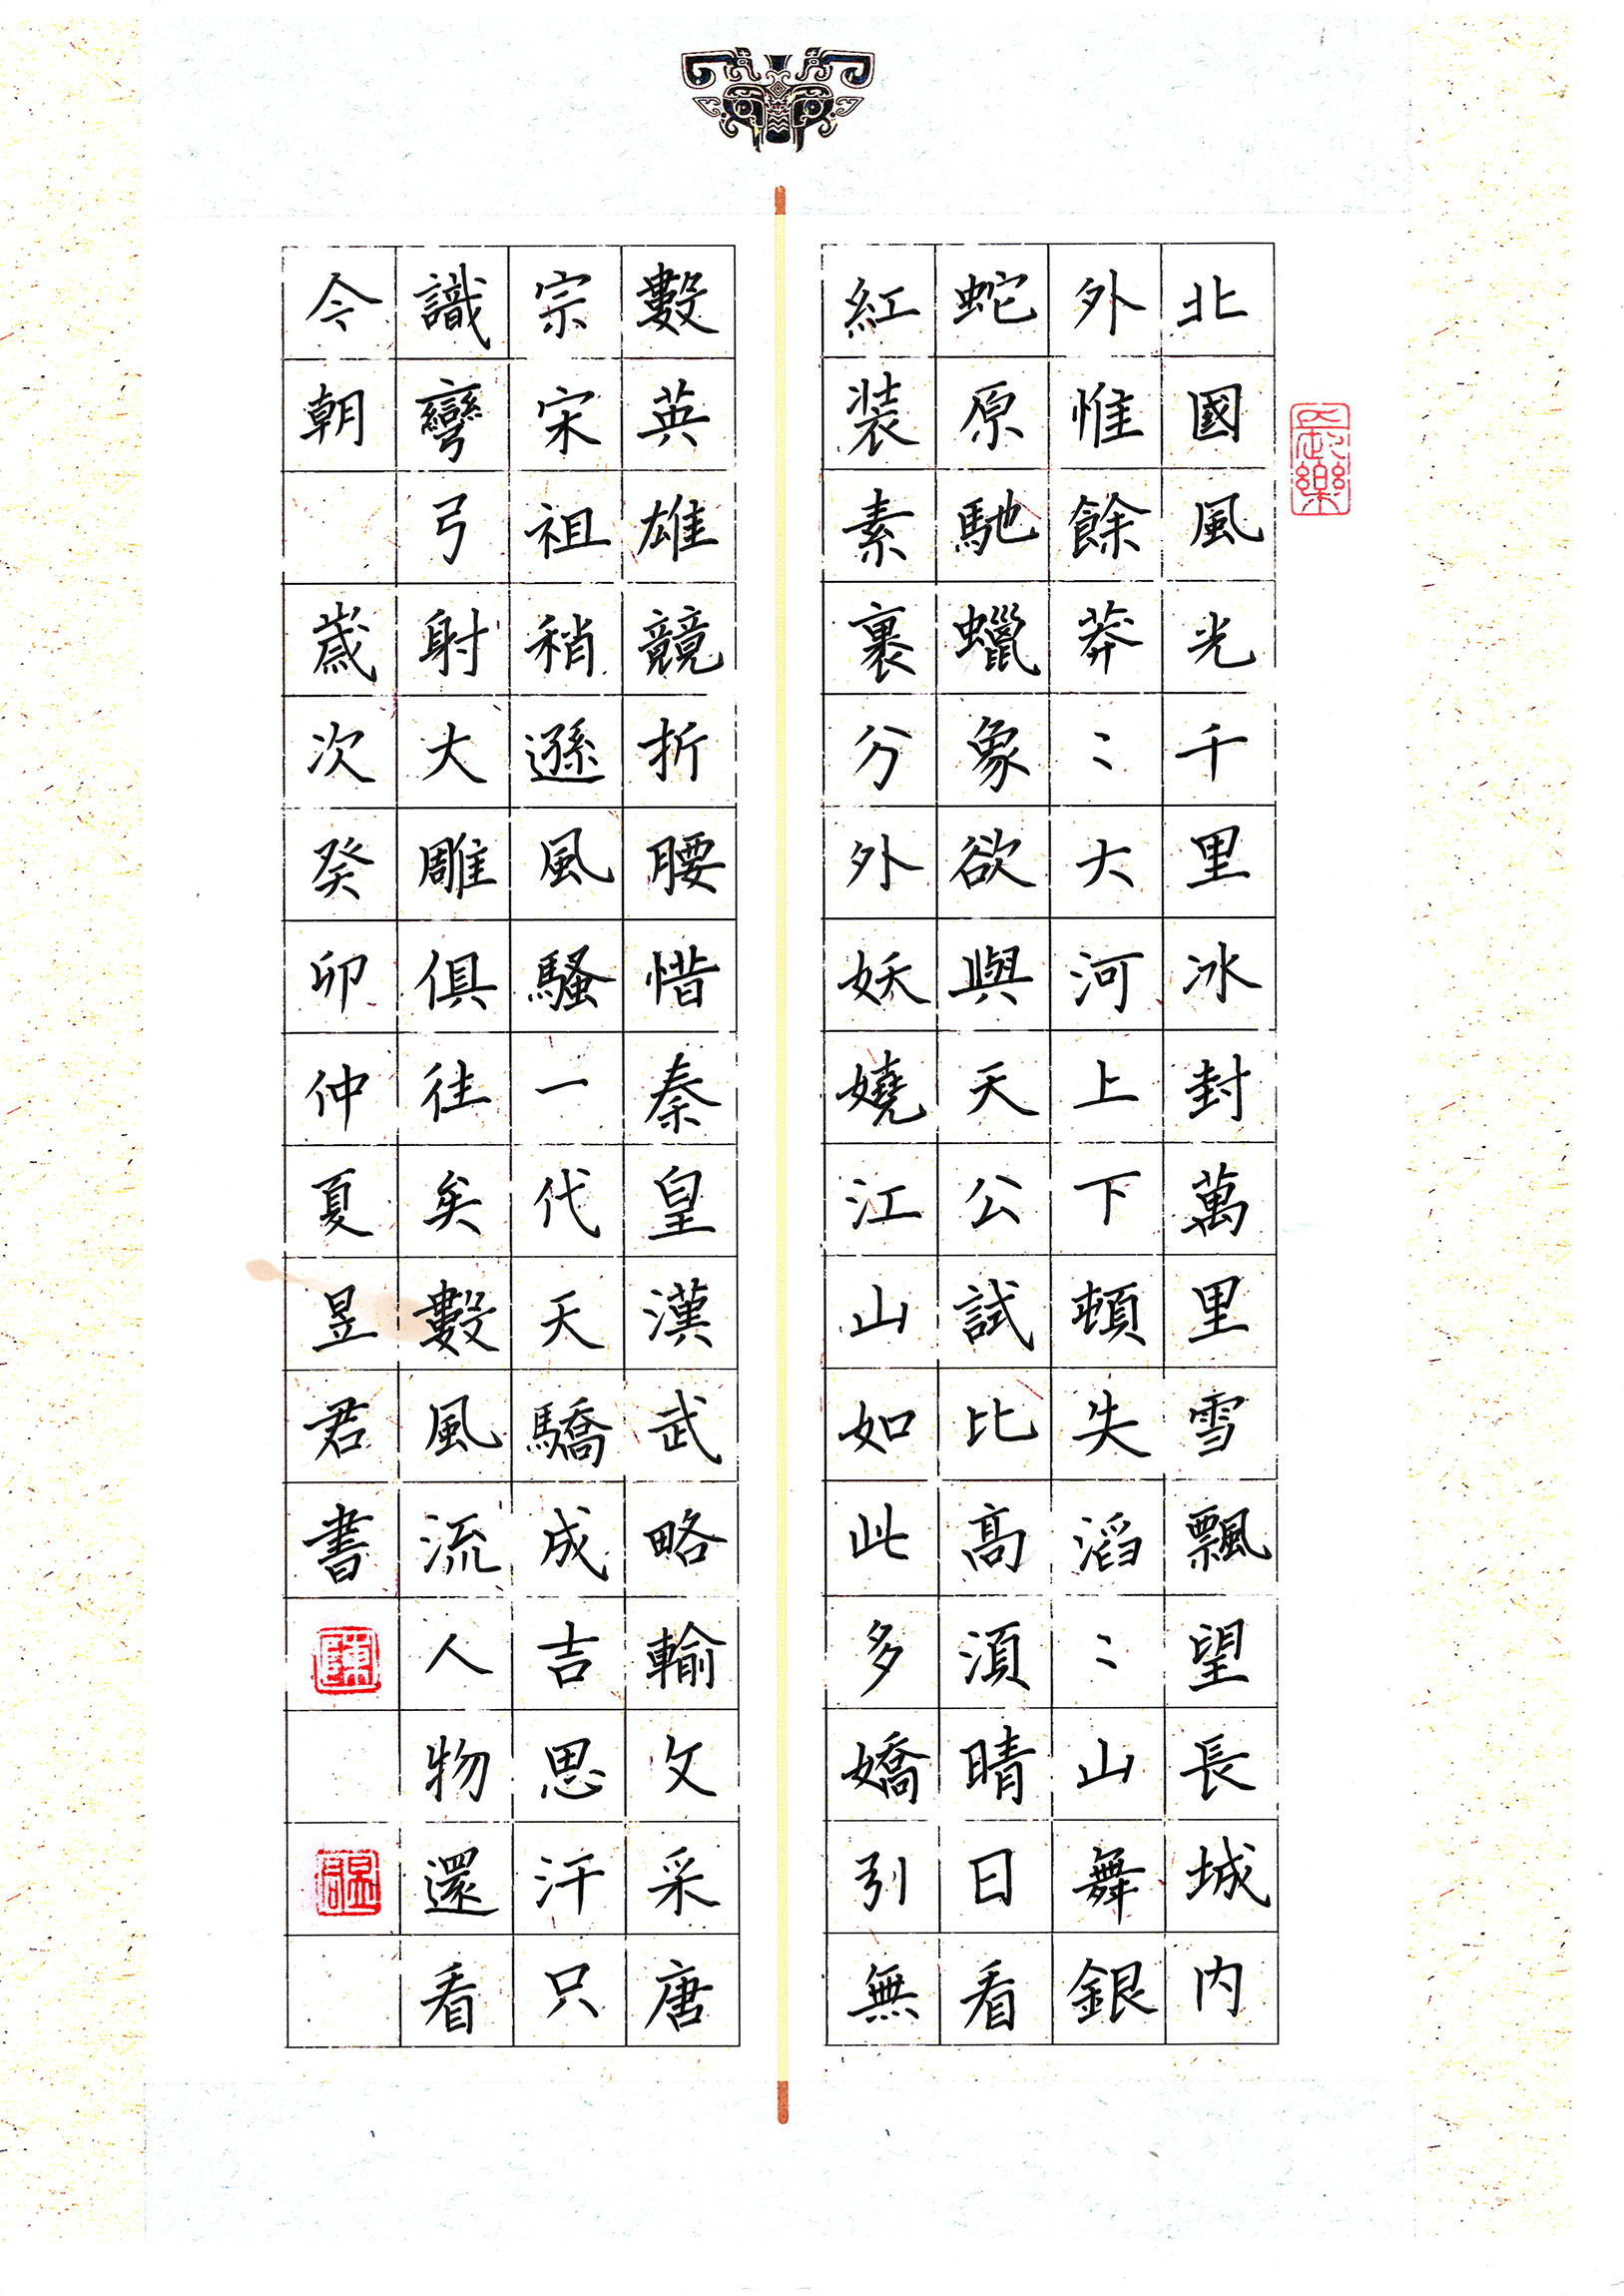 長樂
北國風光千里冰封萬里雪飄望長城内
外惟餘莽〻大河上下頓失滔〻山舞銀
蛇原馳蠟象欲與天公試比髙湏晴日看
紅装素裹分外妖嬈江山如此多嬌引無
數英雄競折腰惜秦皇漢武略輸文采唐
宗宋祖稍遜風騷一代天驕成吉思汗只
識彎弓射大雕俱往矣數風流人物還看
今朝 歲次癸卯仲夏昱君書
陳
昱君